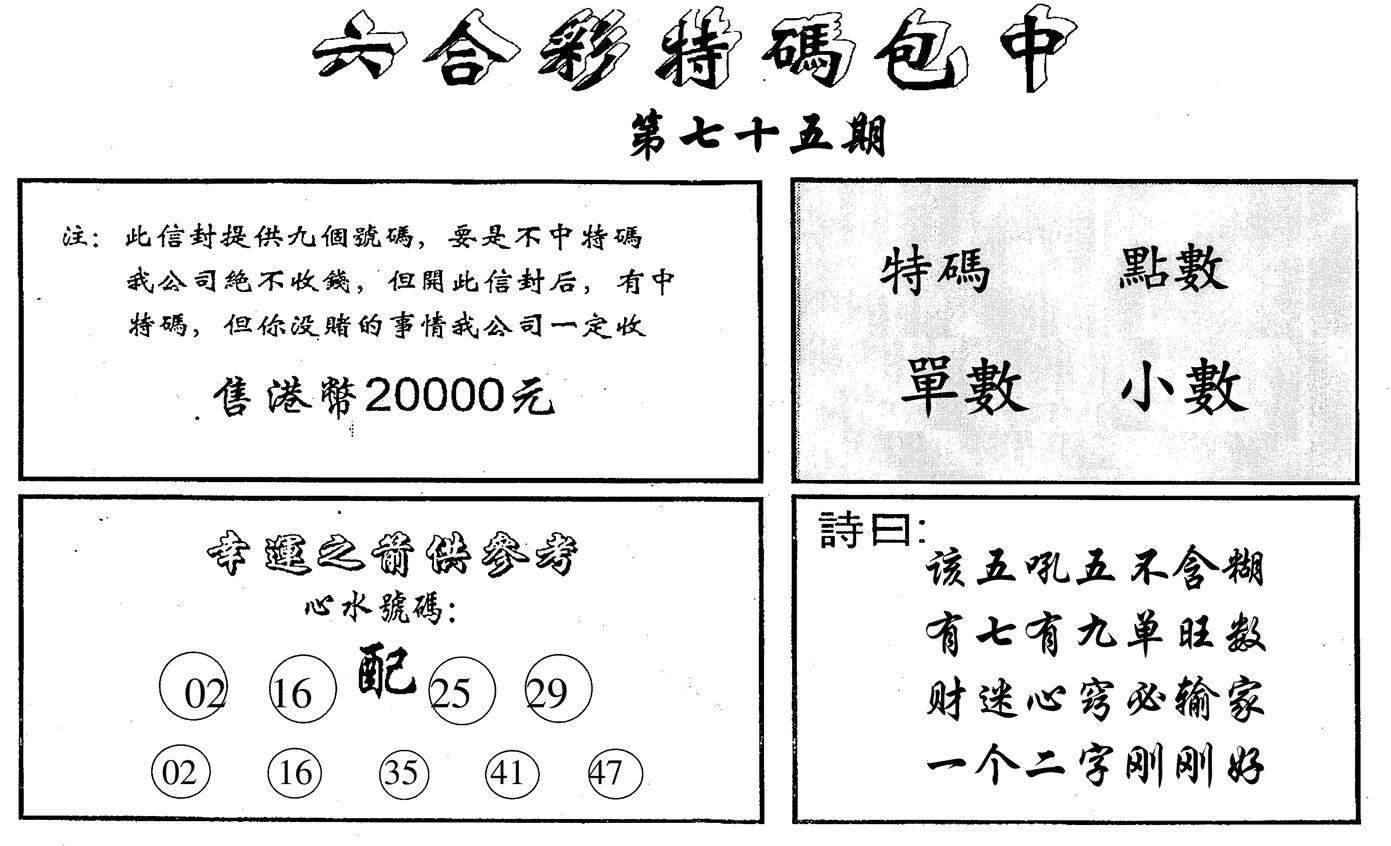 六合彩特碼包中
第七十五期
注：此信封提供九個號碼，要是不中特碼
我公司絶不收錢，但開此信封后，有中
特碼，但你没賭的事情我公司一定收
售港幣20000元
特碼 點數
單數 小數
幸運之箭供參考
心水號碼：
02 16 配 25 29
02 16 35 41 47
詩曰：
该五吼五不含糊
有七有九单旺数
财迷心窍必输家
一个二字刚刚好